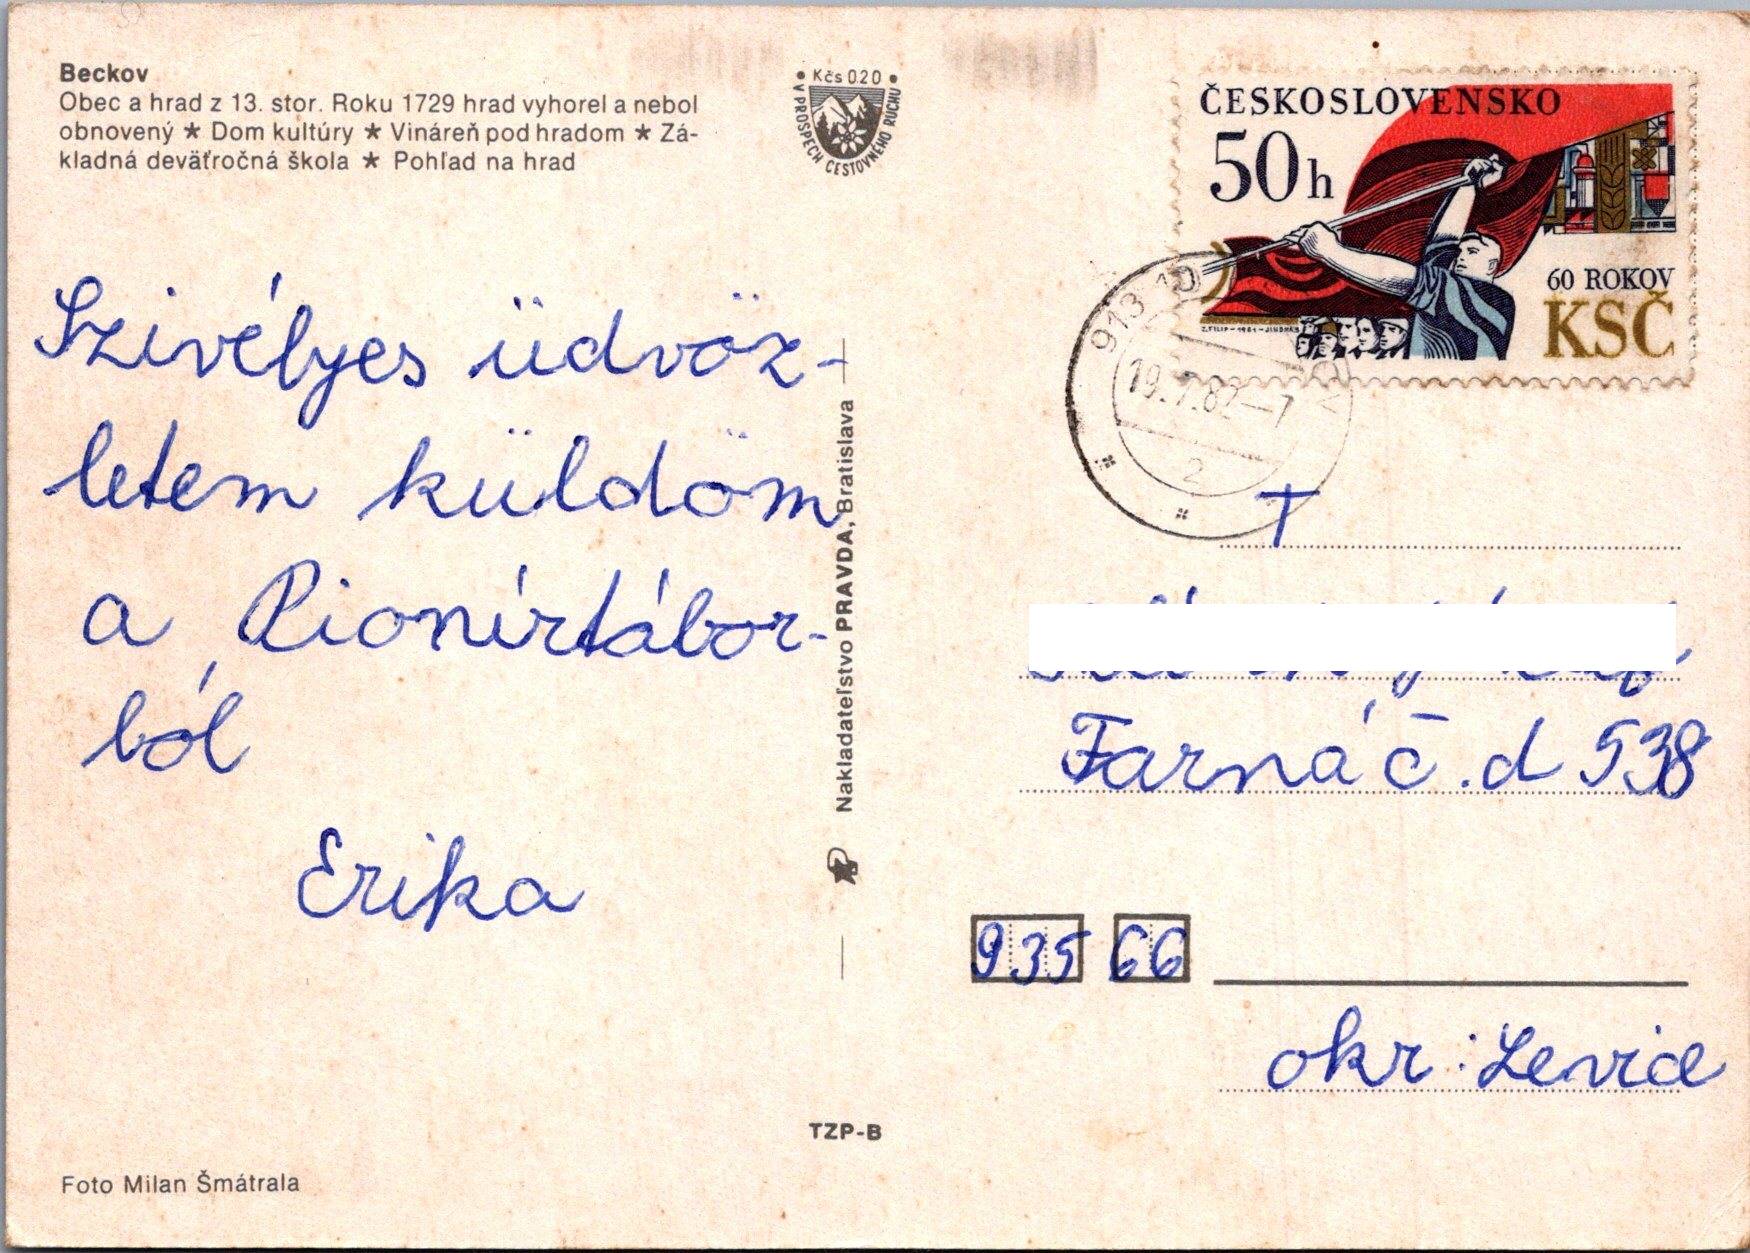 Beckov
Obec a hrad z 13. stor. Roku 1729 hrad vyhorel a nebol
obnovený ★ Dom kultúry ★ Vináreň pod hradom ★ Zá-
kladná deväťročná škola ★ Pohľad na hrad
• Kčs 0.20 •
V PROSPECH CESTOVNÉHO RUCHU
ČESKOSLOVENSKO
50h
60 ROKOV
KSČ
Z.FILIP-1981-JINDRÁK
913 10
19.7.82-7
2
Szivélyes üdvöz-
letem küldöm
a Pionírtábor-
ból
Erika
Nakladateľstvo PRAVDA, Bratislava
T
Farná č.d 538
935 66
okr: Levice
TZP-B
Foto Milan Šmátrala